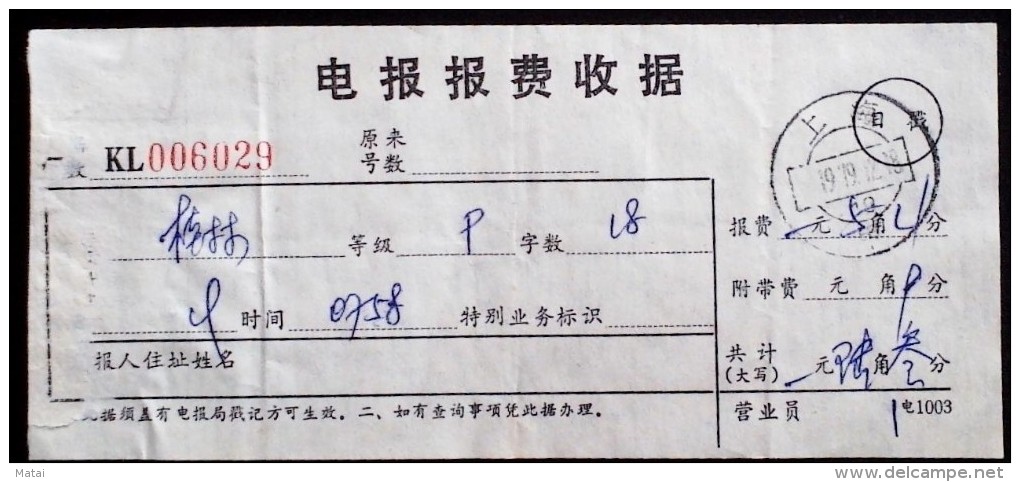 电报报费收据
数 KL006029 原来号数
上海 日戳
桂林 等级 P 字数 18 报费 元 5 角 4 分
附带费 元 角 9 分
时间 0758 特别业务标识
报人住址姓名 共计(大写) 元 陆 角 叁 分
据须盖有电报局戳记方可生效。二、如有查询事项凭此据办理。 营业员 电1003
Matai
delcampe.net